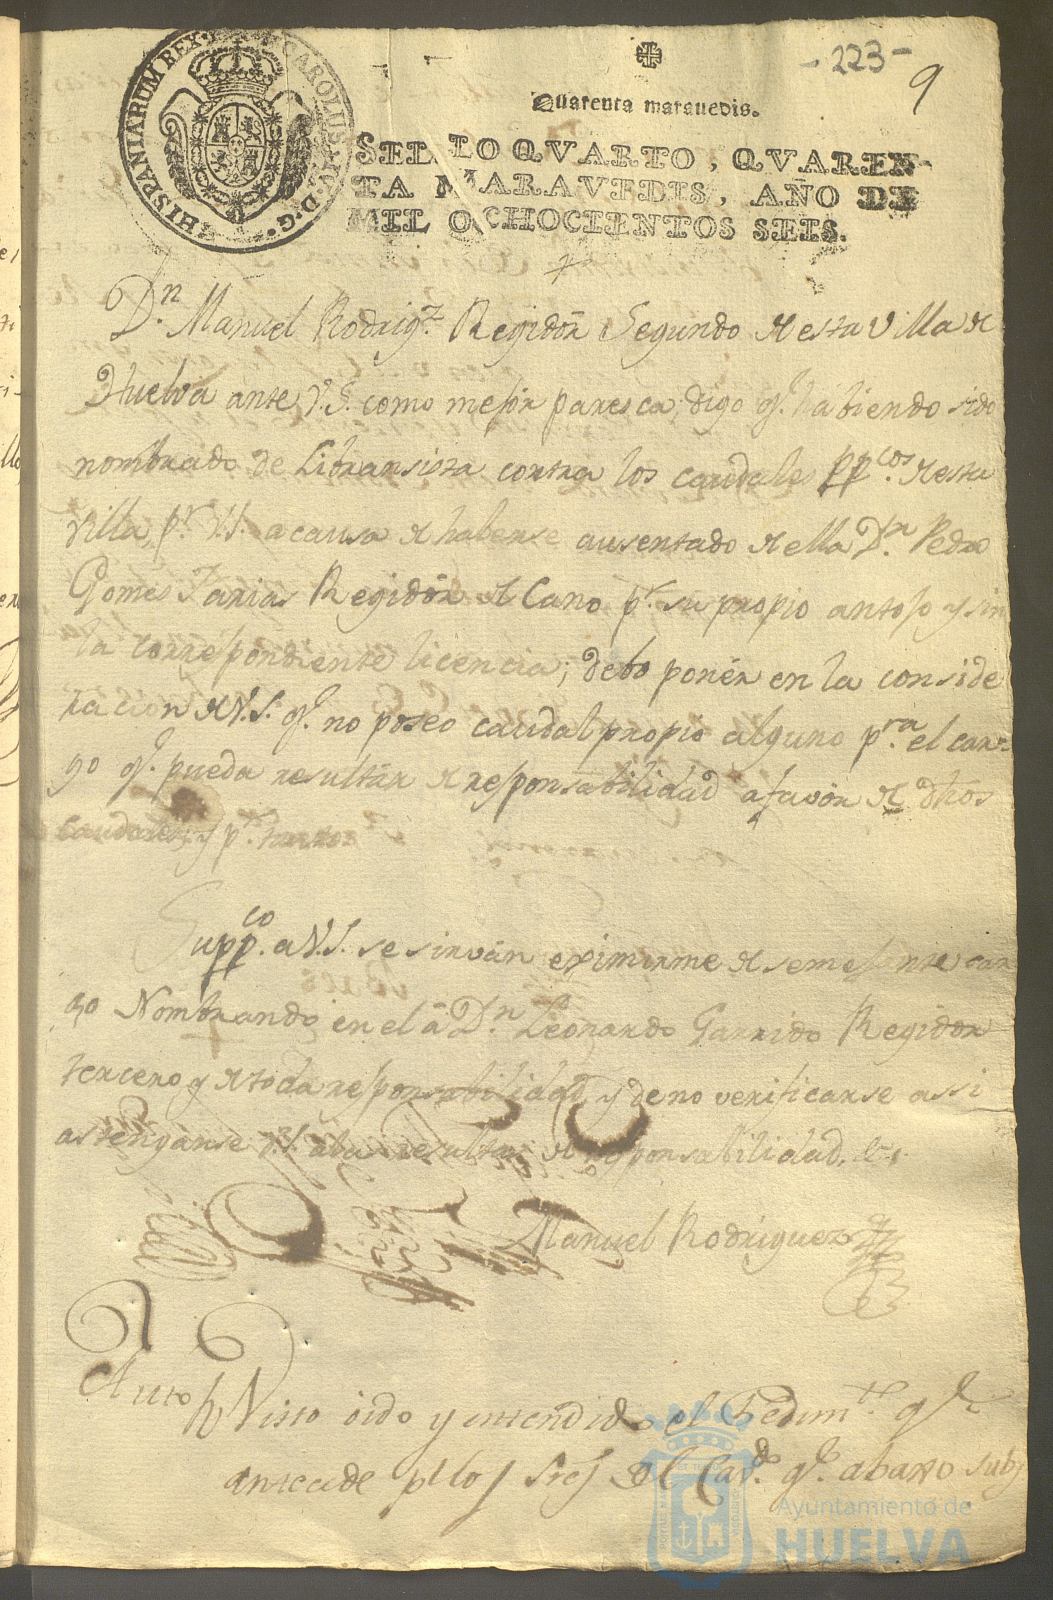 -223-
9
Quarenta maravedis.
SELLO QVARTO, QVAREN-
TA MARAVEDIS, AÑO DE
MIL OCHOCIENTOS SEIS.
CAROLUS IV D G HISPANIARUM REX
Dn. Manuel Rodrigz. Regidor Segundo de esta villa de
Huelva ante V.S. como mejor paresca, digo qe. habiendo sido
nombrado de Libransista contra los caudales ppcos. de esta
villa pr. V.S. a causa de haberse ausentado de ella Dn. Pedro
Gomes Farias Regidor de Cano pr. su propio antojo y sin
la correspondiente licencia; debo poner en la conside
racion de V.S. qe. no poseo caudal propio alguno pra. el car-
go qe. pueda resultar de responsabilidad a favor de dhos
caudales; y pr. tanto
Suppco. a V.S. se sirvan eximirme de semejante car
go Nombrando en el â Dn. Leonardo Garrido Regidor
tercero y de toda responsabilidad, y de no verificarse assi
astenganse V.S. a la resultas de responsabilidad. &.
Manuel Rodriguez
Auto Visto oido y entendido el Pedimto. qe.
antecede pr los Sres del Cavdo. qe. abaxo subs
Ayuntamiento de
HUELVA